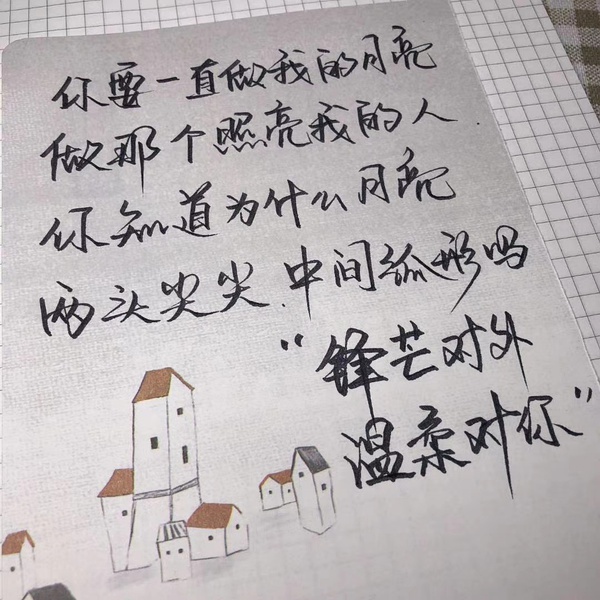 你要一直做我的月亮
做那个照亮我的人
你知道为什么月亮
两头尖尖.中间弧形吗
“锋芒对外
温柔对你”